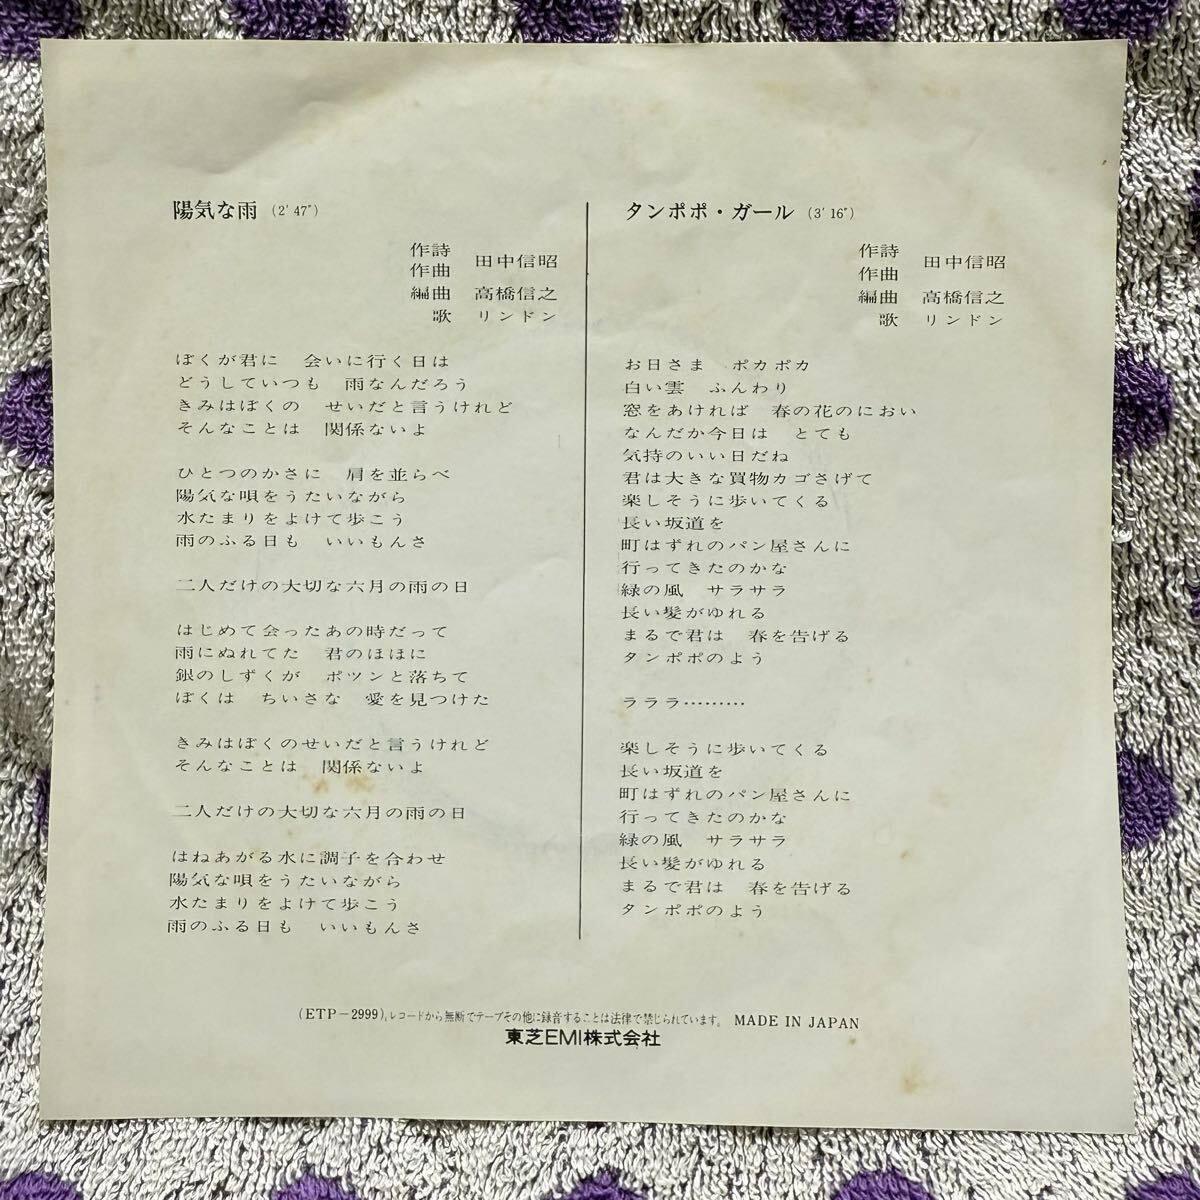 陽気な雨 (2′47″)
作詩
作曲 田中信昭
編曲 高橋信之
歌 リンドン
ぼくが君に 会いに行く日は
どうしていつも 雨なんだろう
きみはぼくの せいだと言うけれど
そんなことは 関係ないよ
ひとつのかさに 肩を並らべ
陽気な唄をうたいながら
水たまりをよけて歩こう
雨のふる日も いいもんさ
二人だけの大切な六月の雨の日
はじめて会ったあの時だって
雨にぬれてた 君のほほに
銀のしずくが ポツンと落ちて
ぼくは ちいさな 愛を見つけた
きみはぼくのせいだと言うけれど
そんなことは 関係ないよ
二人だけの大切な六月の雨の日
はねあがる水に調子を合わせ
陽気な唄をうたいながら
水たまりをよけて歩こう
雨のふる日も いいもんさ
タンポポ・ガール (3′16″)
作詩
作曲 田中信昭
編曲 高橋信之
歌 リンドン
お日さま ポカポカ
白い雲 ふんわり
窓をあければ 春の花のにおい
なんだか今日は とても
気持のいい日だね
君は大きな買物カゴさげて
楽しそうに歩いてくる
長い坂道を
町はずれのパン屋さんに
行ってきたのかな
緑の風 サラサラ
長い髪がゆれる
まるで君は 春を告げる
タンポポのよう
ラララ………
楽しそうに歩いてくる
長い坂道を
町はずれのパン屋さんに
行ってきたのかな
緑の風 サラサラ
長い髪がゆれる
まるで君は 春を告げる
タンポポのよう
(ETP-2999),レコードから無断でテープその他に録音することは法律で禁じられています。 MADE IN JAPAN
東芝EMI株式会社